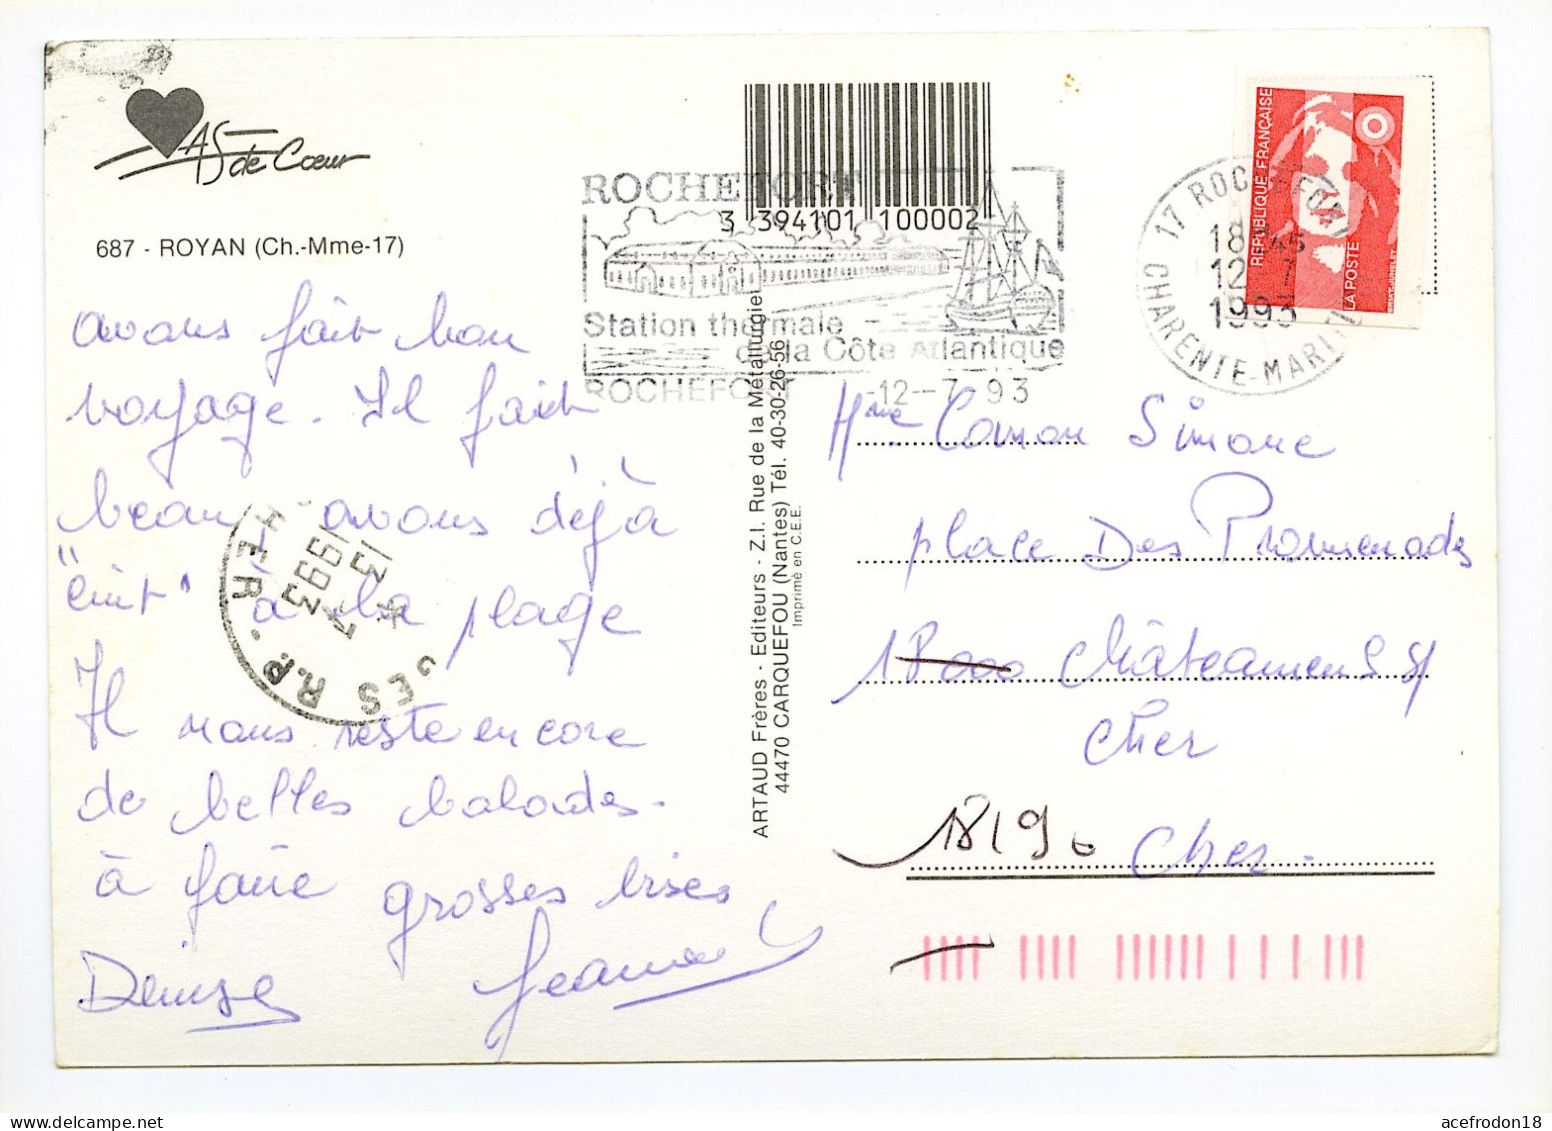 AS de Cœur
687 - ROYAN (Ch.-Mme-17)
avons fait bon
voyage. Il fait
beau avons déjà
"cuit" à la plage
Il nous reste encore
de belles balades.
à faire grosses bises
Denise Jeanne
3 394101 100002
ROCHEFORT
Station thermale
de la Côte Atlantique
ROCHEFORT -12--7 93
ARTAUD Frères - Editeurs - Z.I. Rue de la Métallurgie
44470 CARQUEFOU (Nantes) Tél. 40-30-26-56
Imprimé en C.E.E.
RÉPUBLIQUE FRANÇAISE
LA POSTE
17 ROCHEFORT
18 45
12-7
1993
CHARENTE-MARIT
R.P.
13
7
1993
HER
Mme Camon Simone
place Des Promenades
18000 Châteauneuf s/
Cher
18190 Cher.
acefrodon18